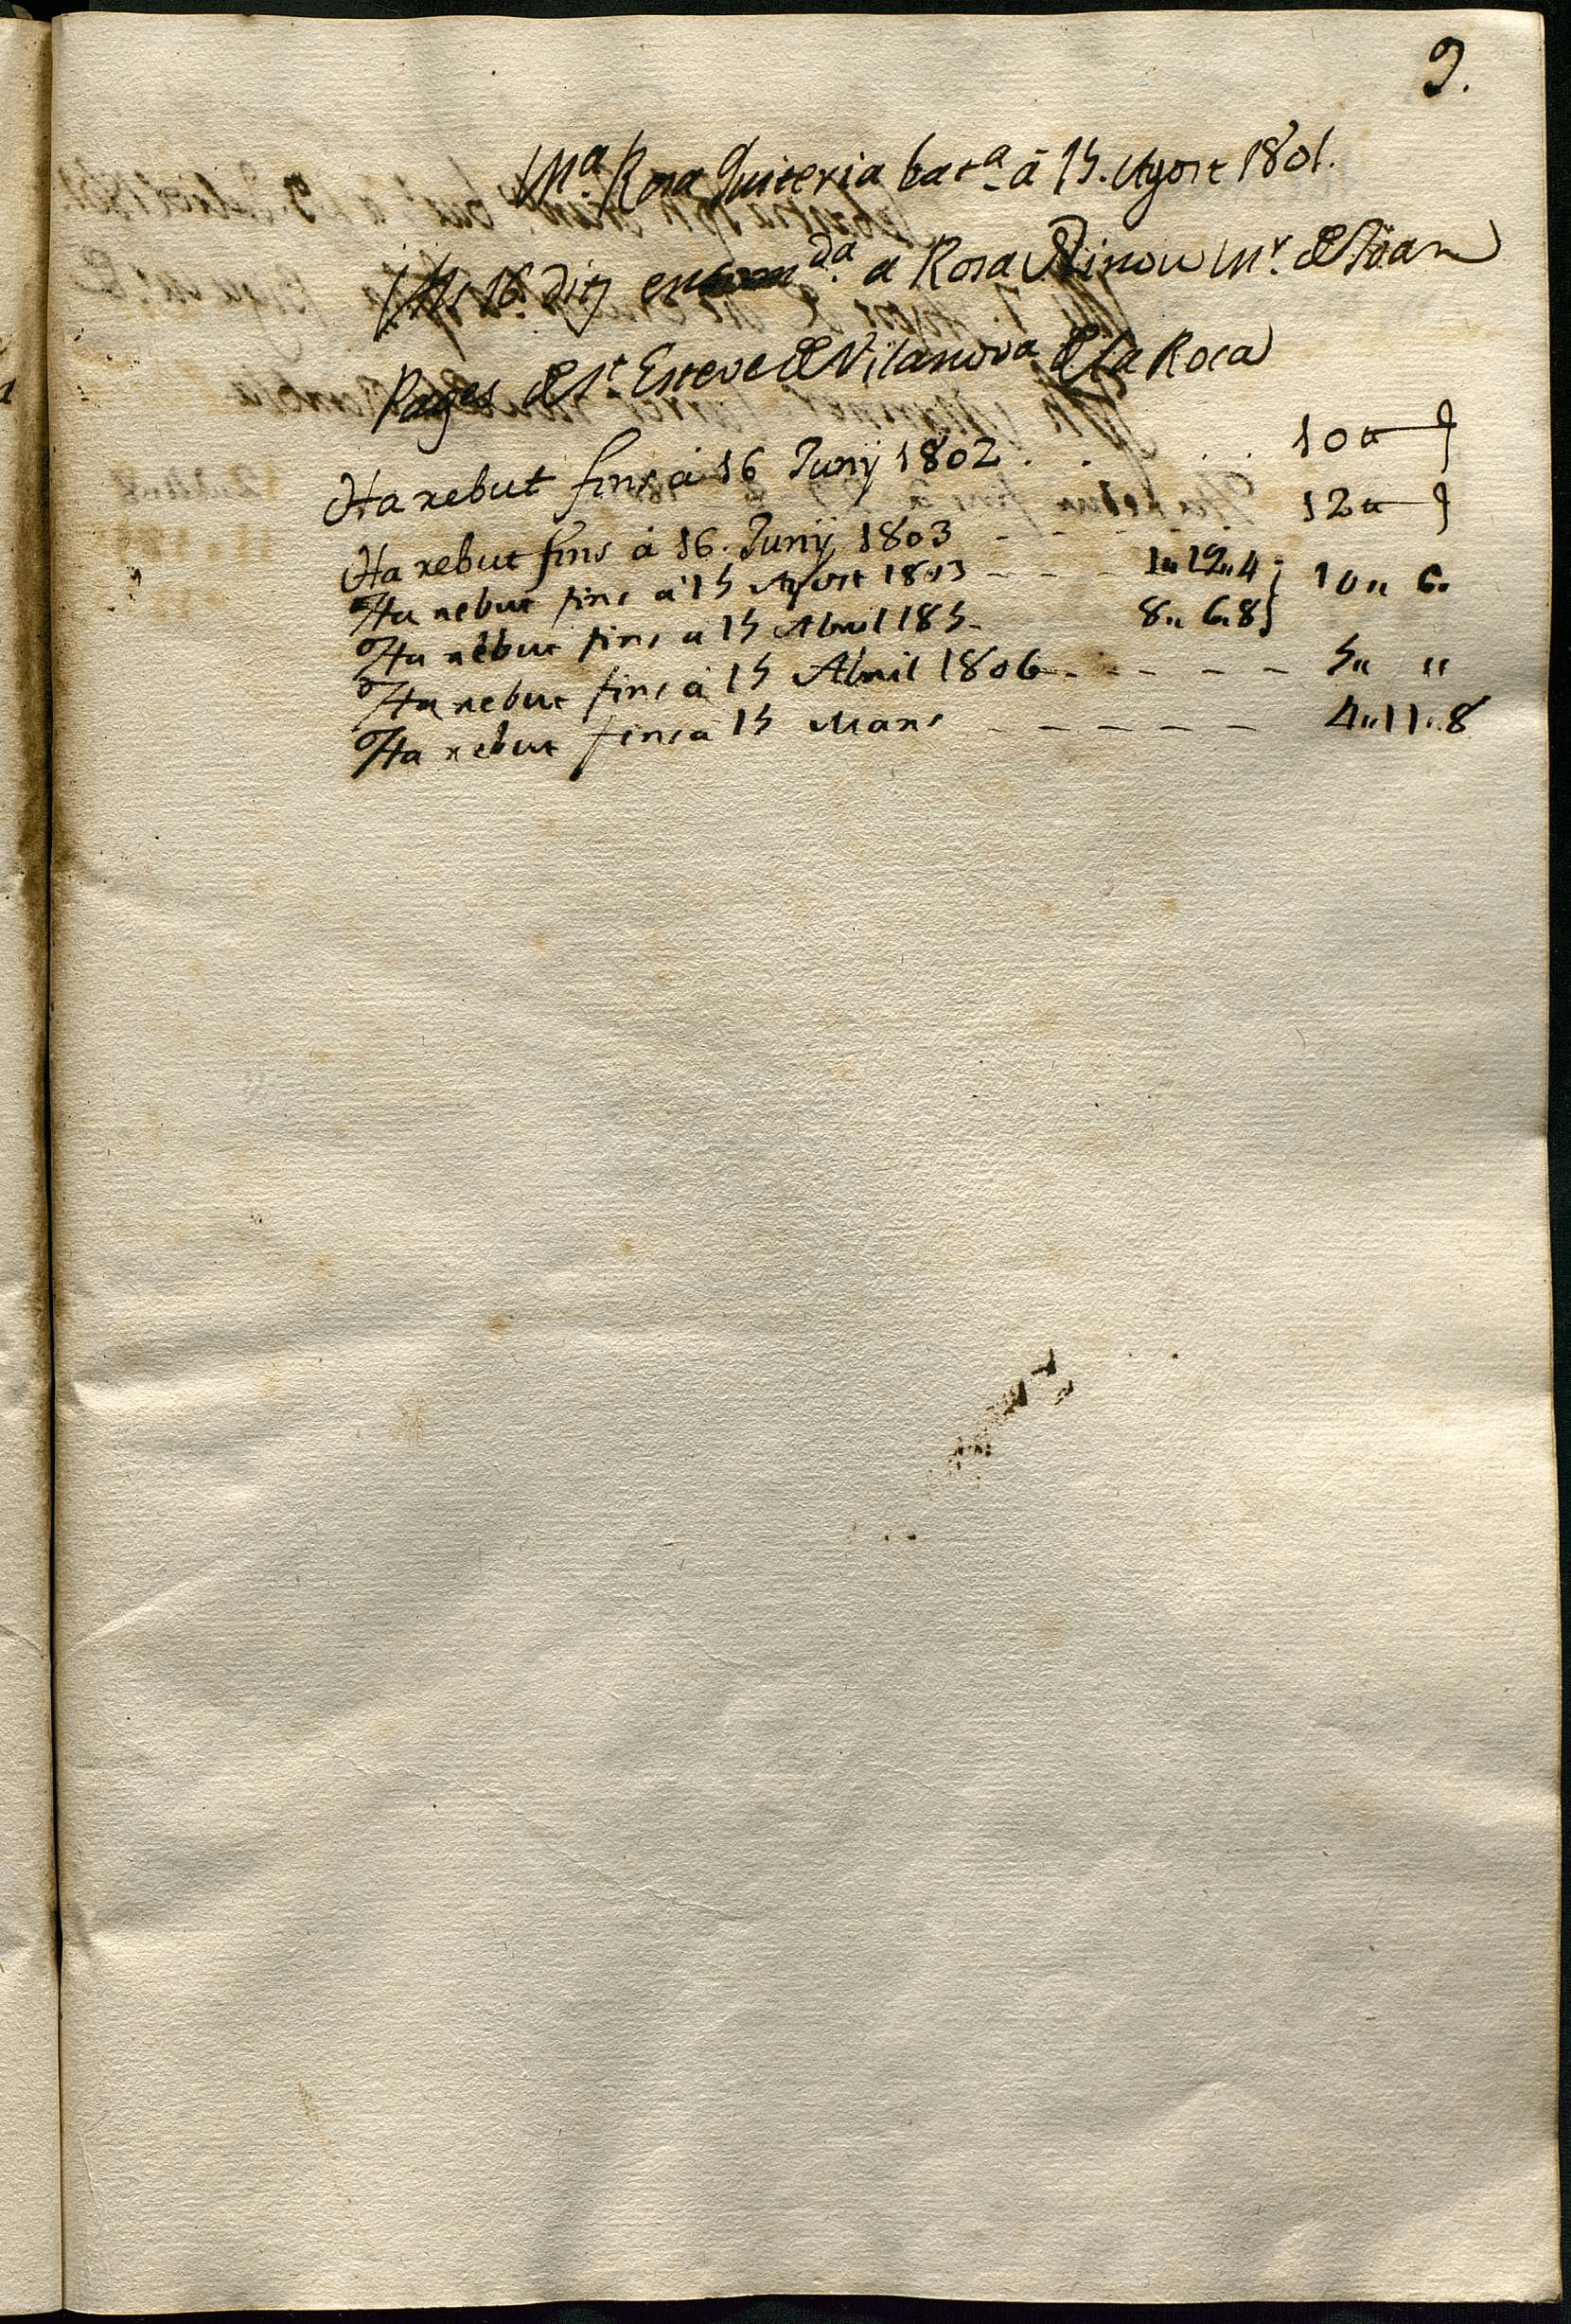 9.
Mª Rosa Quiteria batª à 15. Agost 1801.
Als 16. ditj encomda. a Rosa Ninou mr. de Joan
Pages de St Esteve de Vilanova de la Roca
Ha rebut fins à 16 Junÿ 1802 . . . . 10 ⸗
Ha rebut fins à 16. Junÿ 1803 - - - - 12 ⸗
Ha rebut fins a 15 Agost 1803 - - - 1" 19" 4 } 10" 6"
Ha rebut fins a 15 Abril 185 - 8" 6" 8 }
Ha rebut fins à 15 Abril 1806 - - - - - 5" "
Ha rebut fins a 15 Mars - - - - - 4" 11" 8